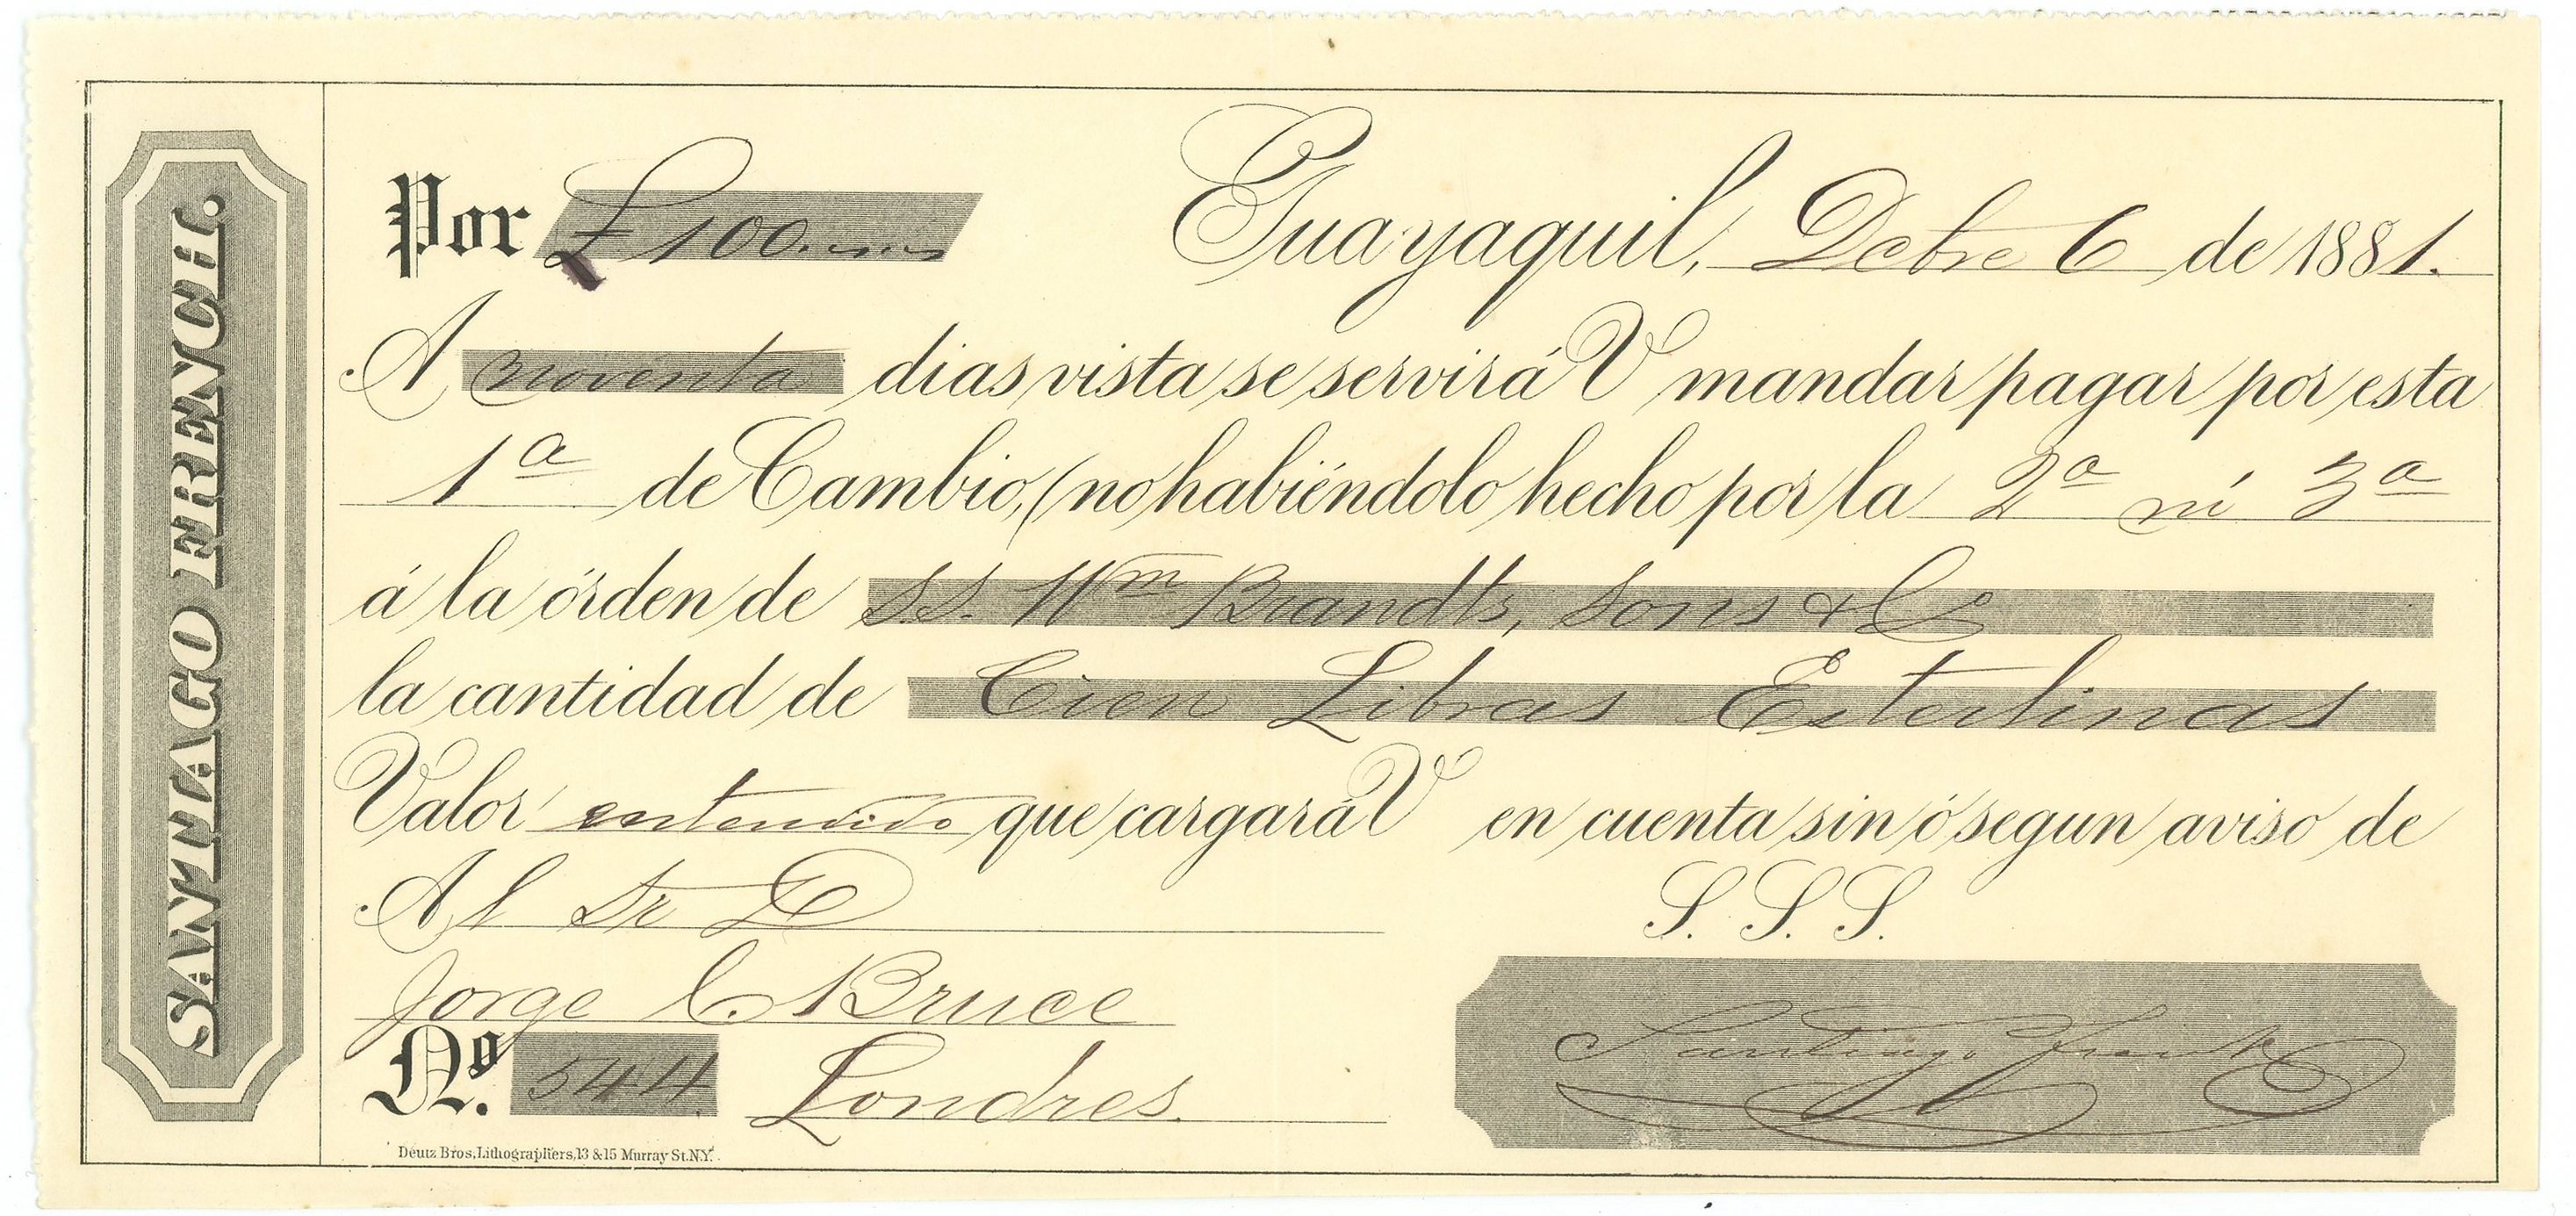 SANTIAGO FRENCH.
Por £ 100.
Guayaquil, Dcbre 6 de 1881.
A noventa dias vista se servirá V mandar pagar por esta
1ª de Cambio, (no habiéndolo hecho por la 2ª ni 3ª
á la órden de SS. Wm Brandts, Sons & Co
la cantidad de Cien Libras Esterlinas
Valor entendido que cargará V en cuenta sin ó segun aviso de
Al Sr D
S. S. S.
Jorge C. Bruce
Santiago French
No. 544 Londres.
Deutz Bros, Lithographers, 13 & 15 Murray St. N.Y.